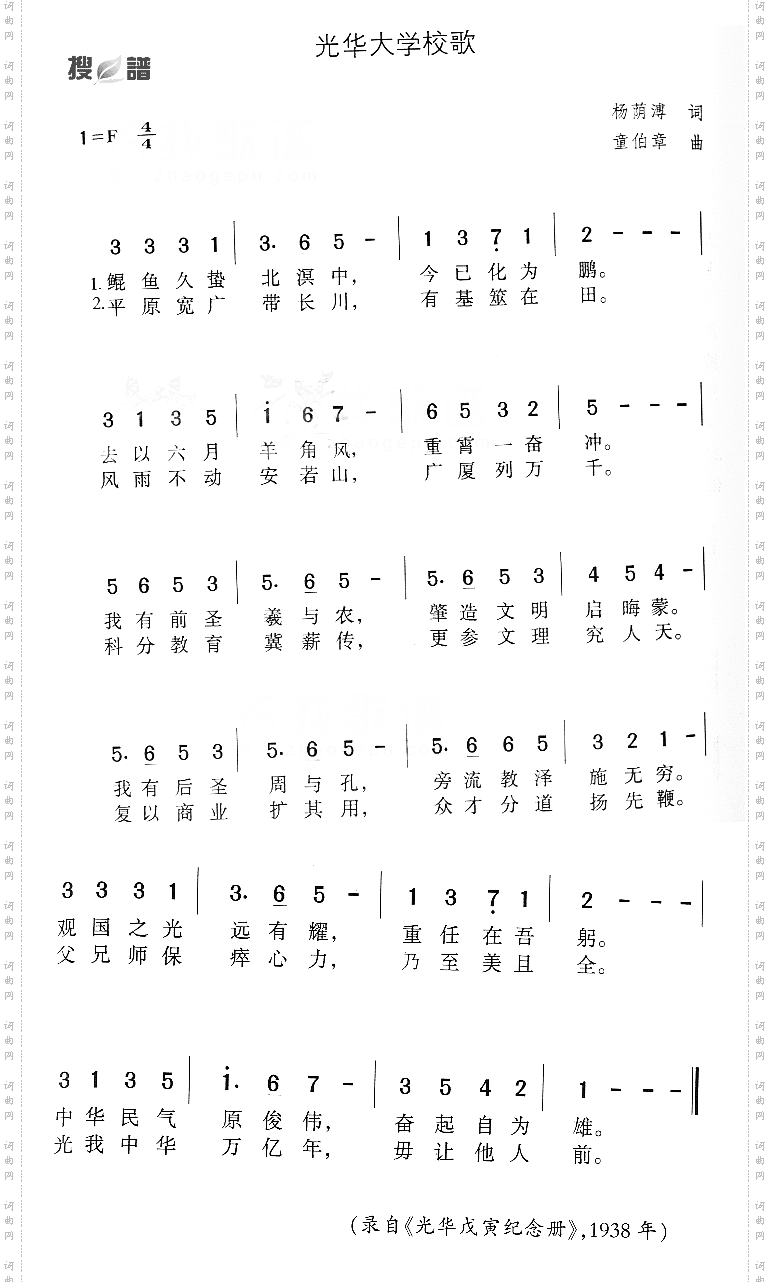 光华大学校歌
搜 譜
杨荫溥 词
1=F 4/4
童伯章 曲
3 3 3 1 | 3. 6 5 - | 1 3 7̣ 1 | 2 - - - |
1.鲲鱼久蛰 北溟中, 今已化为 鹏。
2.平原宽广 带长川, 有基筮在 田。
3 1 3 5 | i̇ 6 7 - | 6 5 3 2 | 5 - - - |
去以六月 羊角风, 重霄一奋 冲。
风雨不动 安若山, 广厦列万 千。
5 6 5 3 | 5. 6 5 - | 5. 6 5 3 | 4 5 4 - |
我有前圣 羲与农, 肇造文明 启晦蒙。
科分教育 冀薪传, 更参文理 究人天。
5. 6 5 3 | 5. 6 5 - | 5. 6 6 5 | 3 2 1 - |
我有后圣 周与孔, 旁流教泽 施无穷。
复以商业 扩其用, 众才分道 扬先鞭。
3 3 3 1 | 3. 6 5 - | 1 3 7̣ 1 | 2 - - - |
观国之光 远有耀, 重任在吾 躬。
父兄师保 瘁心力, 乃至美且 全。
3 1 3 5 | i̇. 6 7 - | 3 5 4 2 | 1 - - - ‖
中华民气 原俊伟, 奋起自为 雄。
光我中华 万亿年, 毋让他人 前。
(录自《光华戊寅纪念册》,1938 年)